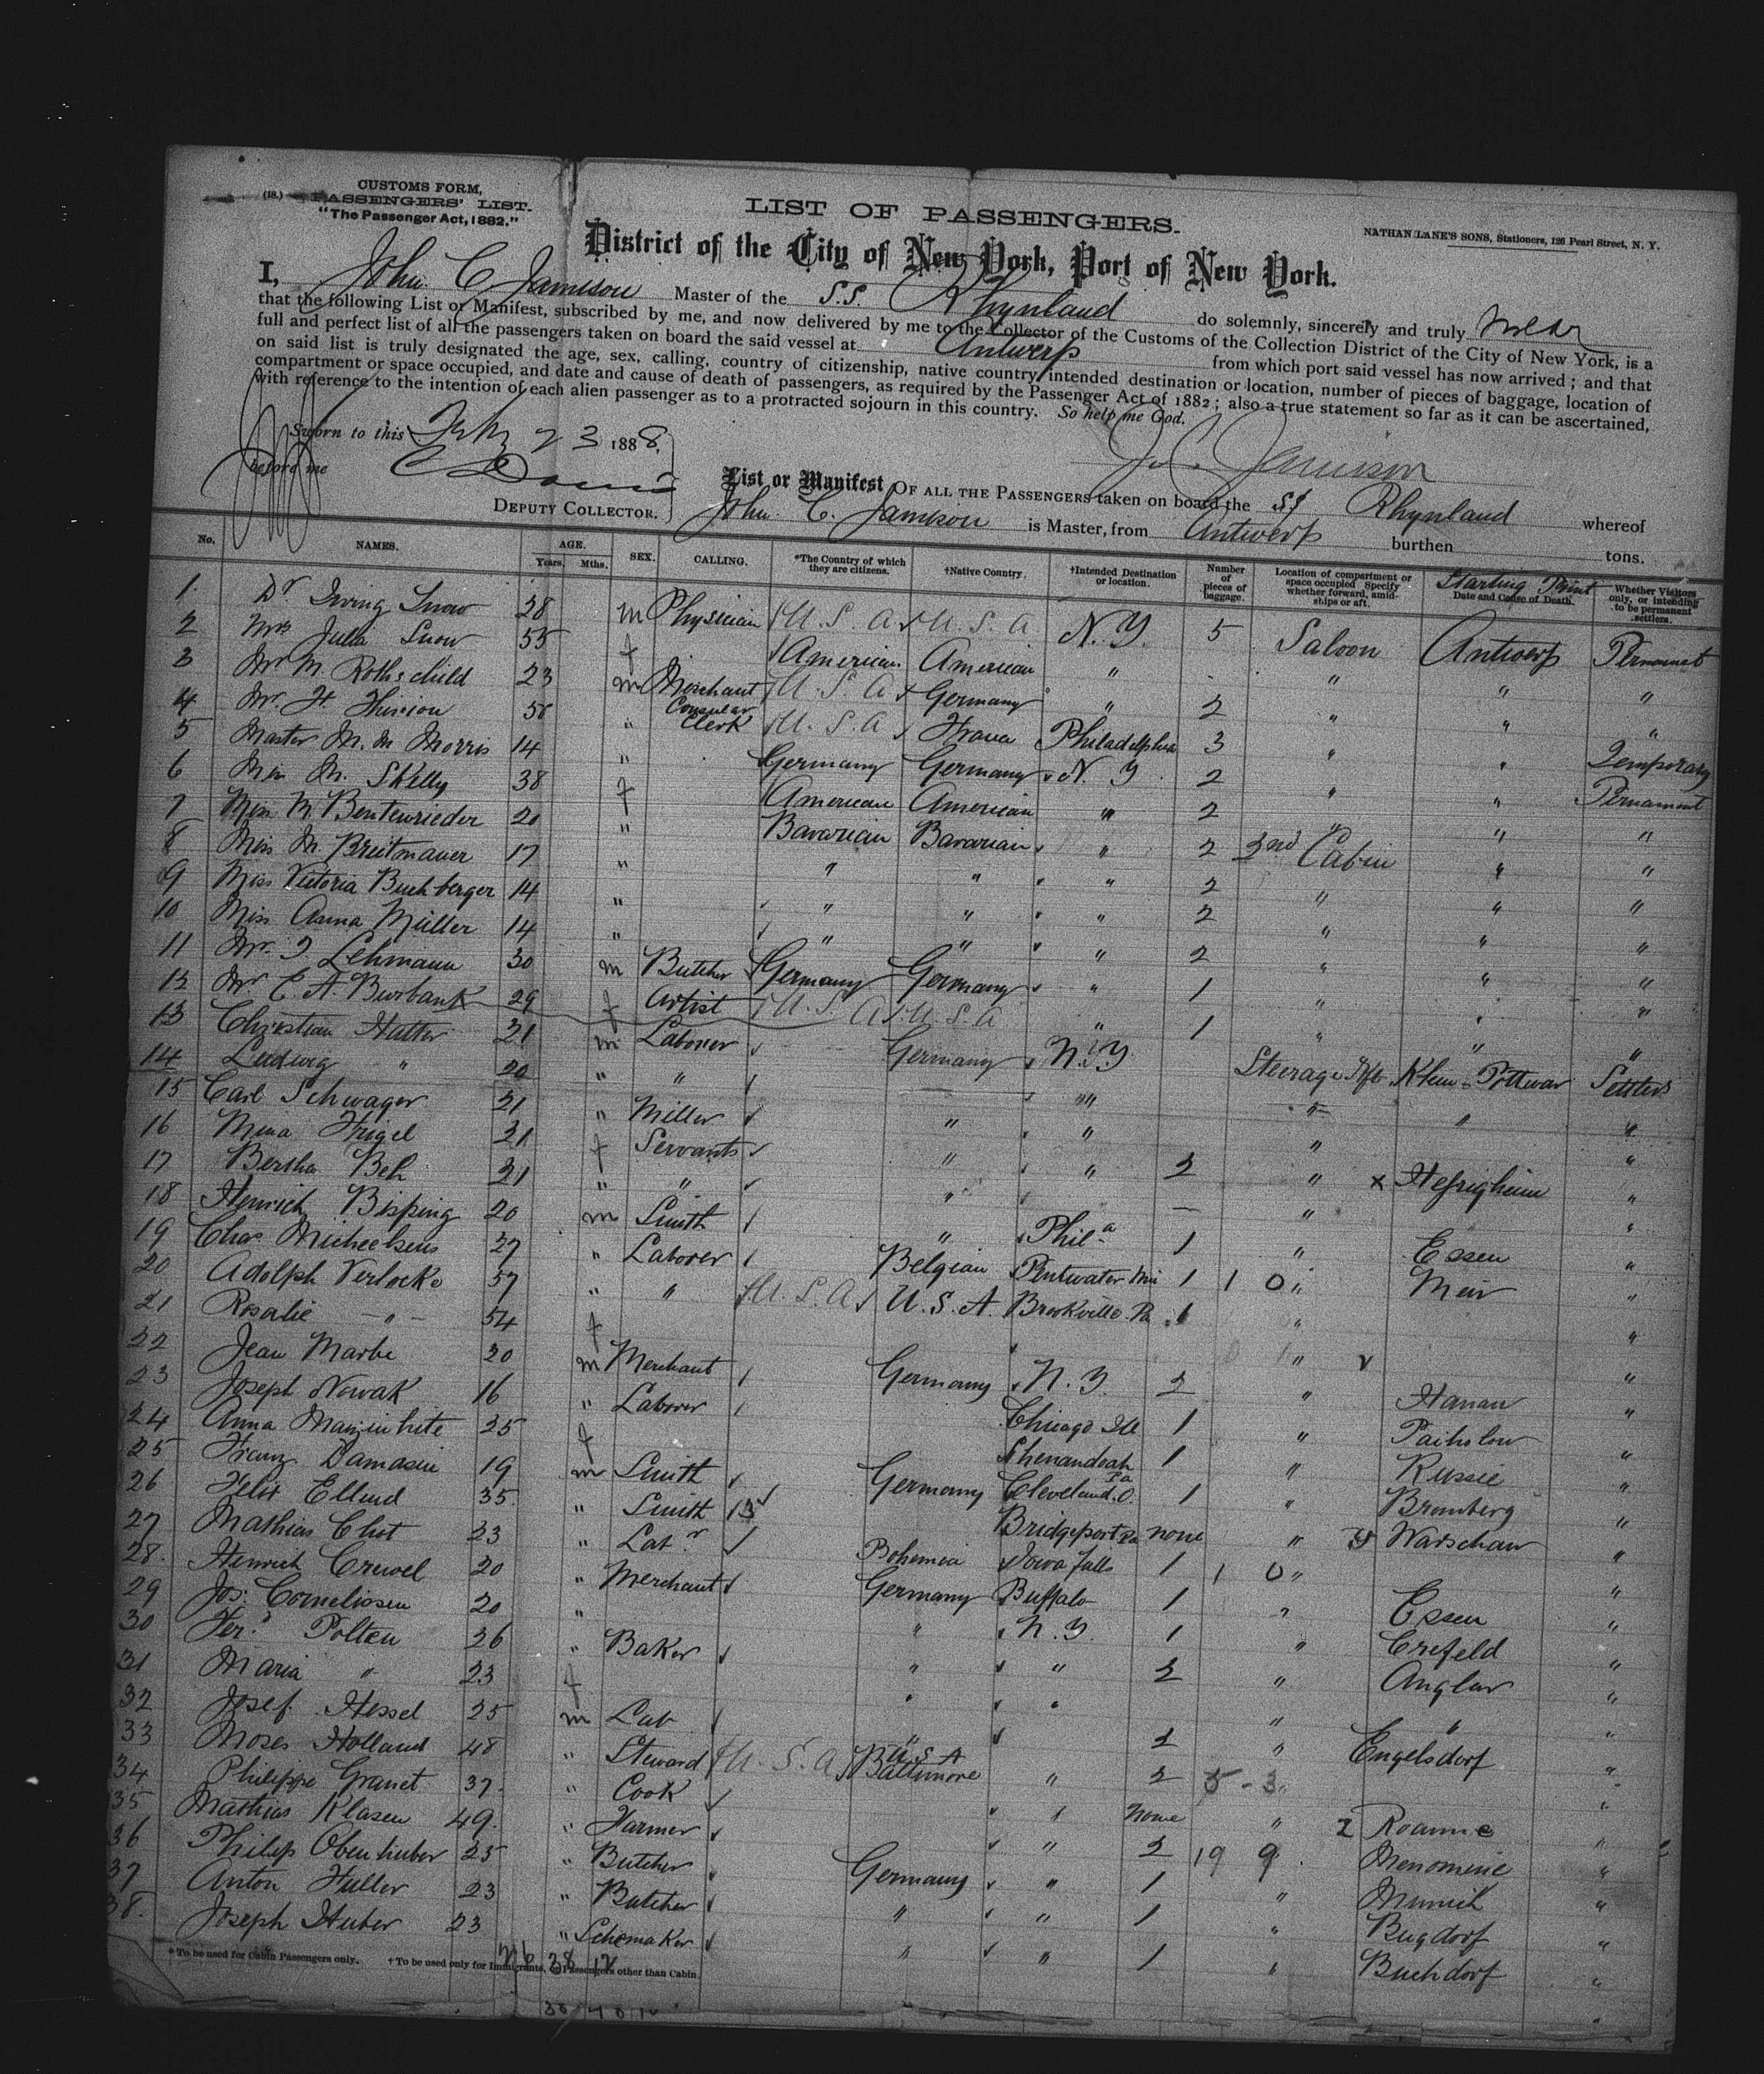 CUSTOMS FORM,
(18.) PASSENGERS' LIST.
"The Passenger Act, 1882."
LIST OF PASSENGERS.
NATHAN LANE'S SONS, Stationers, 126 Pearl Street, N. Y.
District of the City of New York, Port of New York.
I, John C Jamison Master of the S.S. Rhynland do solemnly, sincerely and truly swear
that the following List or Manifest, subscribed by me, and now delivered by me to the Collector of the Customs of the Collection District of the City of New York, is a
full and perfect list of all the passengers taken on board the said vessel at Antwerp from which port said vessel has now arrived; and that
on said list is truly designated the age, sex, calling, country of citizenship, native country, intended destination or location, number of pieces of baggage, location of
compartment or space occupied, and date and cause of death of passengers, as required by the Passenger Act of 1882; also a true statement so far as it can be ascertained,
with reference to the intention of each alien passenger as to a protracted sojourn in this country. So help me God.
Sworn to this Feby 23 1888,
before me
J. C. Jamison
DEPUTY COLLECTOR.
List or Manifest OF ALL THE PASSENGERS taken on board the SS Rhynland whereof
John C. Jamison is Master, from Antwerp burthen tons.
No. NAMES. AGE. Years. Mths. SEX. CALLING. *The Country of which they are citizens. †Native Country. †Intended Destination or location. Number of pieces of baggage. Location of compartment or space occupied Specify whether forward, amidships or aft. Starting Point Date and Cause of Death. Whether Visitors only, or intending to be permanent settlers.
1. Dr Irving Snow 28 m Physician U. S. A U. S. A N. Y. 5 Saloon Antwerp Permanent
2 Mrs Julia Snow 55 f American American " " " "
3 Mr M. Rothschild 23 m Merchant U. S. A Germany " 2 " " "
4 Mr. H. Thirion 58 " Consular Clerk U. S. A Philadelphia 3 " " Temporary
5 Master M. M Morris 14 " Germany Germany N. Y 2 " " Permanent
6 M. Skelly 38 f American American " 2 " " "
7 Miss M. Bentenrieder 20 " Bavarian Bavarian " 2 2nd Cabin " "
8 Miss M. Breitmauer 17 " " " " 2 " " "
9 Miss Victoria Buchberger 14 " " " " 2 " " "
10 Miss Anna Müller 14 " " " " 2 " " "
11 Mr. Lehmann 30 m Butcher Germany Germany " 1 " " "
12 Mr E. A. Burbank 29 f Artist U. S. A U. S. A " 1 " " "
13 Christian Hatter 21 m Laborer Germany N. Y. Steerage Aft Klein-Bottwar Settlers
14 Ludwig " 20 " " " " " "
15 Carl Schwager 21 " Miller " " " "
16 Mina Frigel 21 f Servants " " 2 " x Hessigheim "
17 Bertha Beh 21 " " " — " "
18 Heinrich Bisping 20 m Smith " Phila 1 " Essen "
19 Chas Micheelsens 27 " Laborer Belgian Pentwater Mi 1 1 0 " Meir "
20 Adolph Verlocke 57 " " U. S. A U. S. A. Brookville Pa 1 " "
21 Rosalie " 54 f " "
22 Jean Marbe 20 m Merchant Germany N. Y. 2 " Hanau "
23 Joseph Nowak 16 " Laborer Chicago Ill 1 " "
24 Anna 25 f Shenandoah Pa 1 " Russie "
25 Franz Damasin 19 m Smith Germany Cleveland. O. 1 " Bromberg "
26 Felix Ellend 35 " Smith Bridgeport Pa none " Warschau "
27 Mathias Chot 23 " Labr Bohemia Iowa Falls 1 1 0 " "
28. Heinrich Crewel 20 " Merchant Germany Buffalo 1 " Essen "
29 Jos. Cornelissen 20 " " N. Y. 1 " Crefeld "
30 Ferd Polten 26 " Baker " " 2 " Anglar "
31 Maria " 23 f " " " " "
32 Josef Hessel 25 m Lab " 2 " Engelsdorf "
33 Moses Holland 48 " Steward U. S. A U S A Baltimore " 2 5-3 "
34 Philippe Granet 37. " Cook " None " Roanne "
35 Mathias Klasen 49. " Farmer " 2 19 9 Menomenie "
36 Philip Obenhuber 25 " Butcher Germany " 1 " Munich "
37 Anton Huller 23 " Butcher " " 1 " Bugdorf "
38. Joseph Huber 23 " Schomaker " " 1 " Buchdorf "
* To be used for Cabin Passengers only. † To be used only for Immigrants, or Passengers other than Cabin.
26 38 12